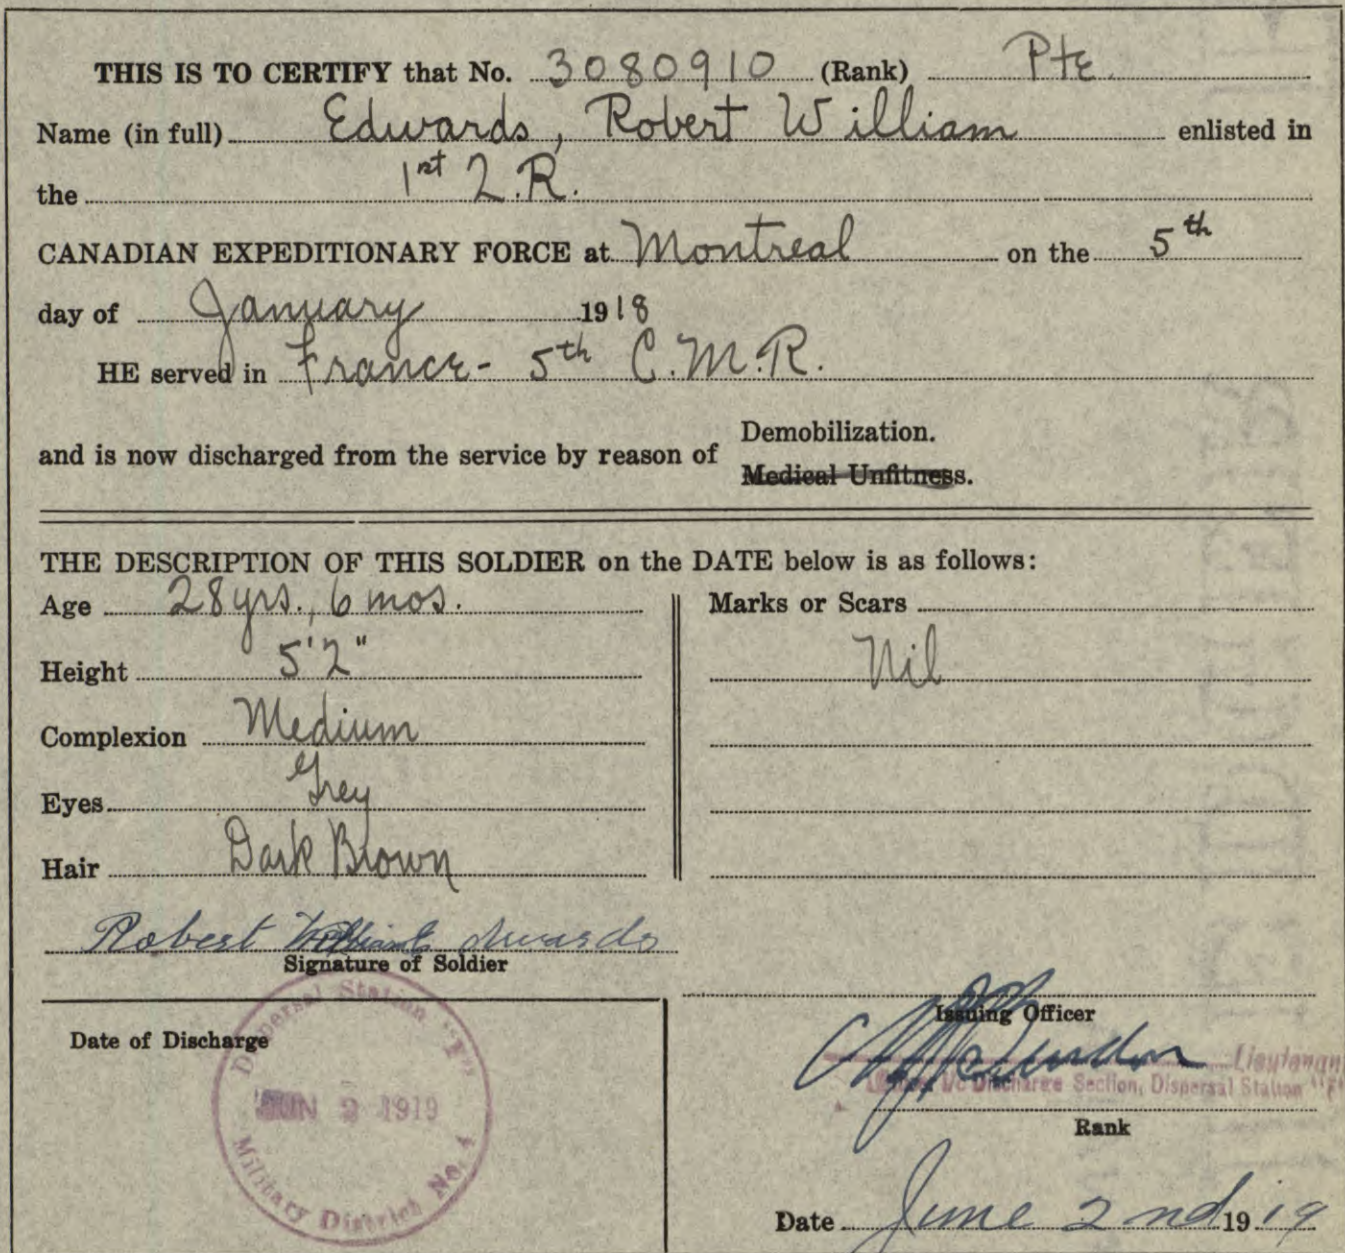 THIS IS TO CERTIFY that No. 3080910 (Rank) Pte.
Name (in full) Edwards, Robert William enlisted in
the 1st Q.R.
CANADIAN EXPEDITIONARY FORCE at Montreal on the 5th
day of January 1918
HE served in France - 5th C.M.R.
and is now discharged from the service by reason of Demobilization.
Medical Unfitness.
THE DESCRIPTION OF THIS SOLDIER on the DATE below is as follows:
Age 28 yrs., 6 mos.
Height 5'2"
Complexion Medium
Eyes Grey
Hair Dark Brown
Marks or Scars
Nil
Robert William Edwards
Signature of Soldier
Date of Discharge
Dispersal Station "F"
JUN 2 1919
Military District No. 4
Issuing Officer
Lieutenant
i/c Discharge Section, Dispersal Station "F"
Rank
Date June 2nd 1919